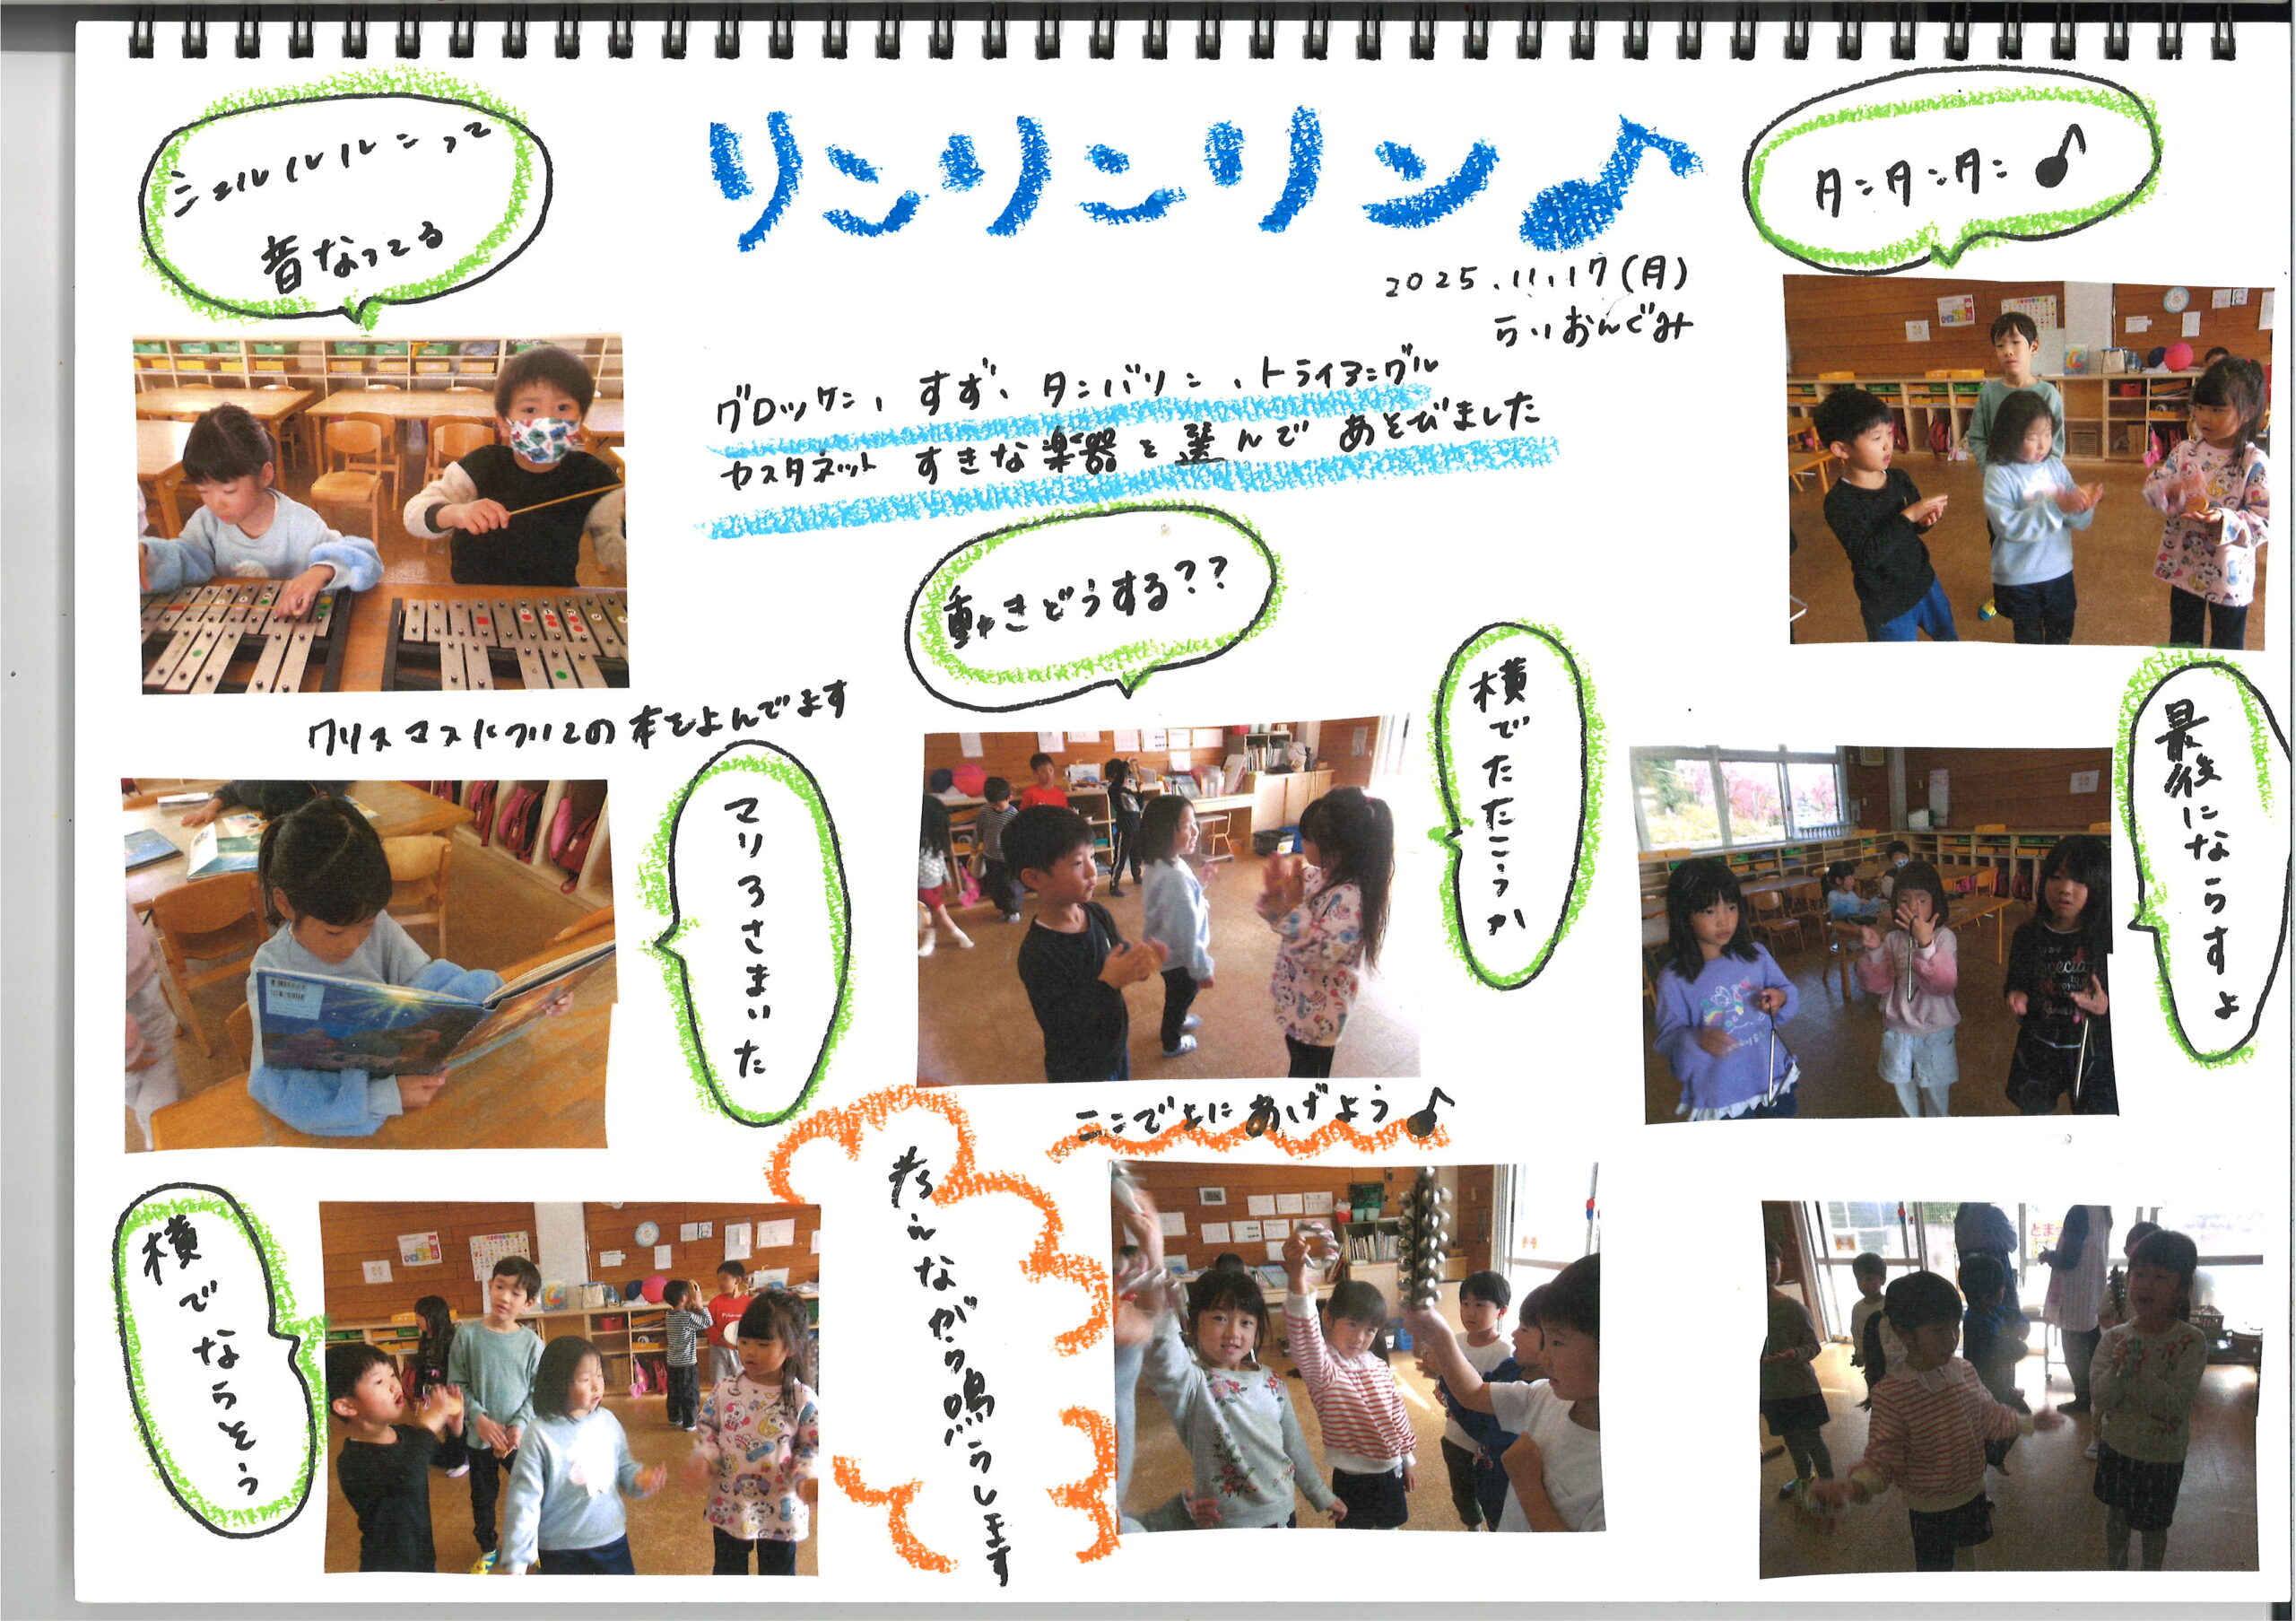 リンリンリン♪
2025.11.17(月)
らいおんぐみ
グロッケン、すず、タンバリン、トライアングル
カスタネット すきな楽器を選んであそびました
シュルルルンって
音なってる
タンタンタン♪
動きどうする??
横でたたこうか
最後にならすよ
クリスマスについての本をよんでます
マリアさまいた
ここで上にあげよう♪
横でならそう
考えながら鳴らします